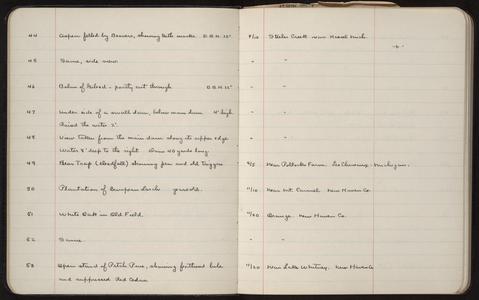 44 Aspen felled by Beavers, showing teeth marks. D.B.H. 15" 9/10 Steeles Creek near Mich.
-6-
45 Same, side view. " "
46 Balm of Gilead - partly cut through D.B.H. 12" " "
47 Under side of a small dam, below main dam 4' high. " "
Raised the water 2'.
48 View taken from the main dam along its upper edge " "
Water 8' deep to the right Dam 40 yards long.
49 Bear Trap (deadfall) showing pen and old trigger Near Pollocks Farm. Les Cheneaux. Michigan.
50 Plantation of European Larch years old. 11/10 Near Mt. Carmel New Haven Co.
51 White Oak in Old Field. 11/20 Orange. New Haven Co.
52 Same. " "
53 Open stand of Pitch Pine, showing 11/20 Near Lake Whitney. New Haven
and suppressed Red Cedar